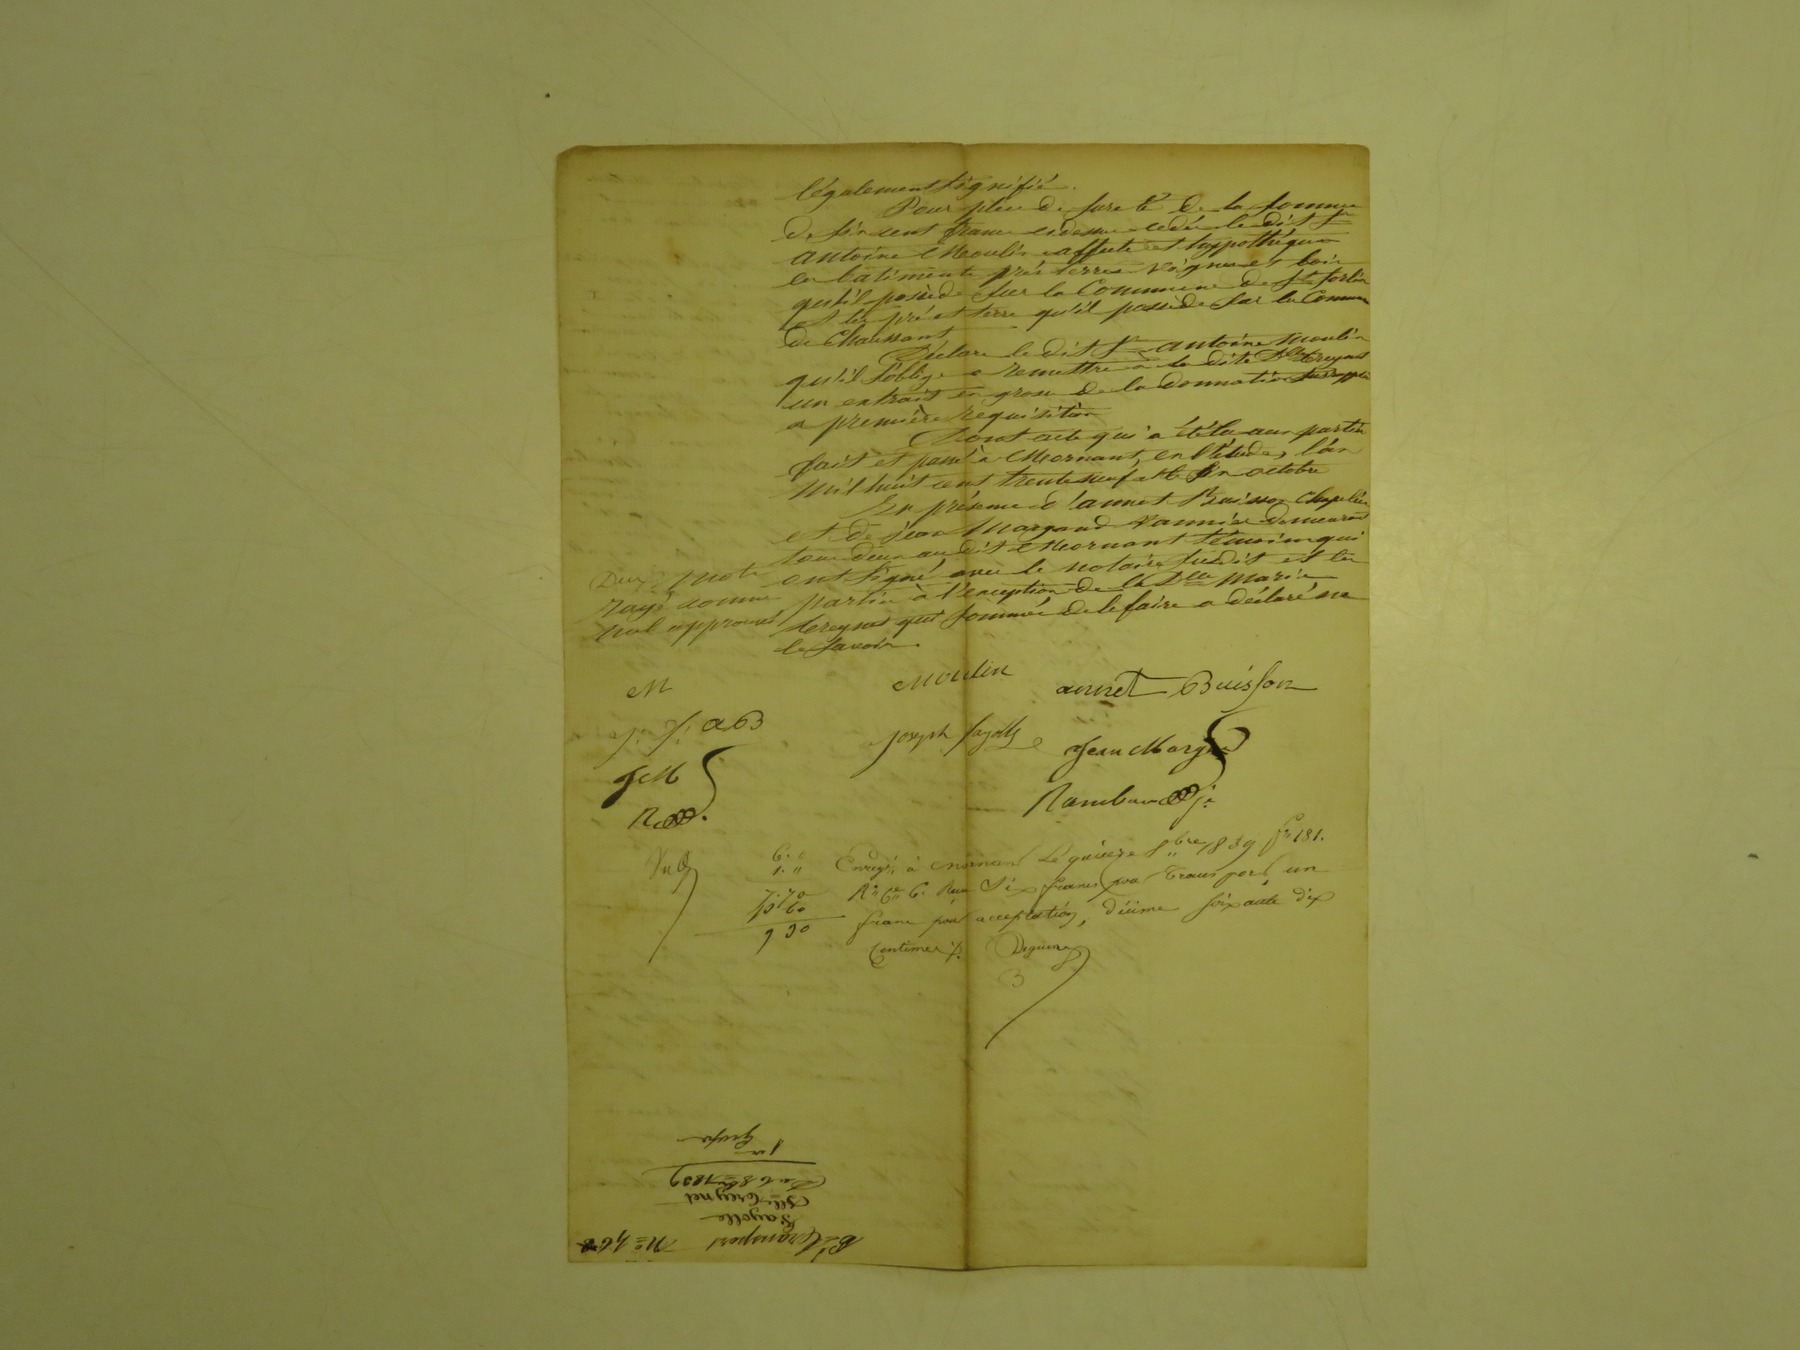 légalement signifié.
Pour plus de sureté de la somme
de six cent francs cidessus cédée le dit Sr
antoine Moulin affecte et hyppothèque
les batiments prés terres vignes et bois
qu'il possède sur la Commune de St Sorlin
et les pré et terre qu'il possède sur la Commune
de Chaussant
Déclare le dit Sr antoine Moulin
qu'il s'oblige a remettre à la dite Dlle Creynet
un extrait en grosse de la donnation
a première requisition
Dont acte qui a été lu aux parties
fait et passé à Mornant, en l'étude, l'an
mil huit cent trente neuf et le six octobre
En présence d'annet Buisson Chapelier
et de jean Margand vannier demeurant
tous deux au dit Mornant témoins qui
ont signé avec le notaire susdit et les
parties à l'exception de la Dlle Marie
Creynet qui sommée de le faire a déclaré ne
le savoir.
Deux mots
rayé comme
nul approuvés
M
Moulin
annet Buisson
j. f. aB
joseph fayolle
jean Margand
JM
R
Rambaud
6. "
1. "
7. 70
9 90
Enregé à Mornant le quinze 8bre 1839 fo 181.
Ro Ce 6. Reçu Six francs pour transport, un
franc pour acceptation, décime soixante dix
Centimes
No 468
Transport
Fayolle
Dlle Creynet
Du 6 8bre 1839
1re
Grosse